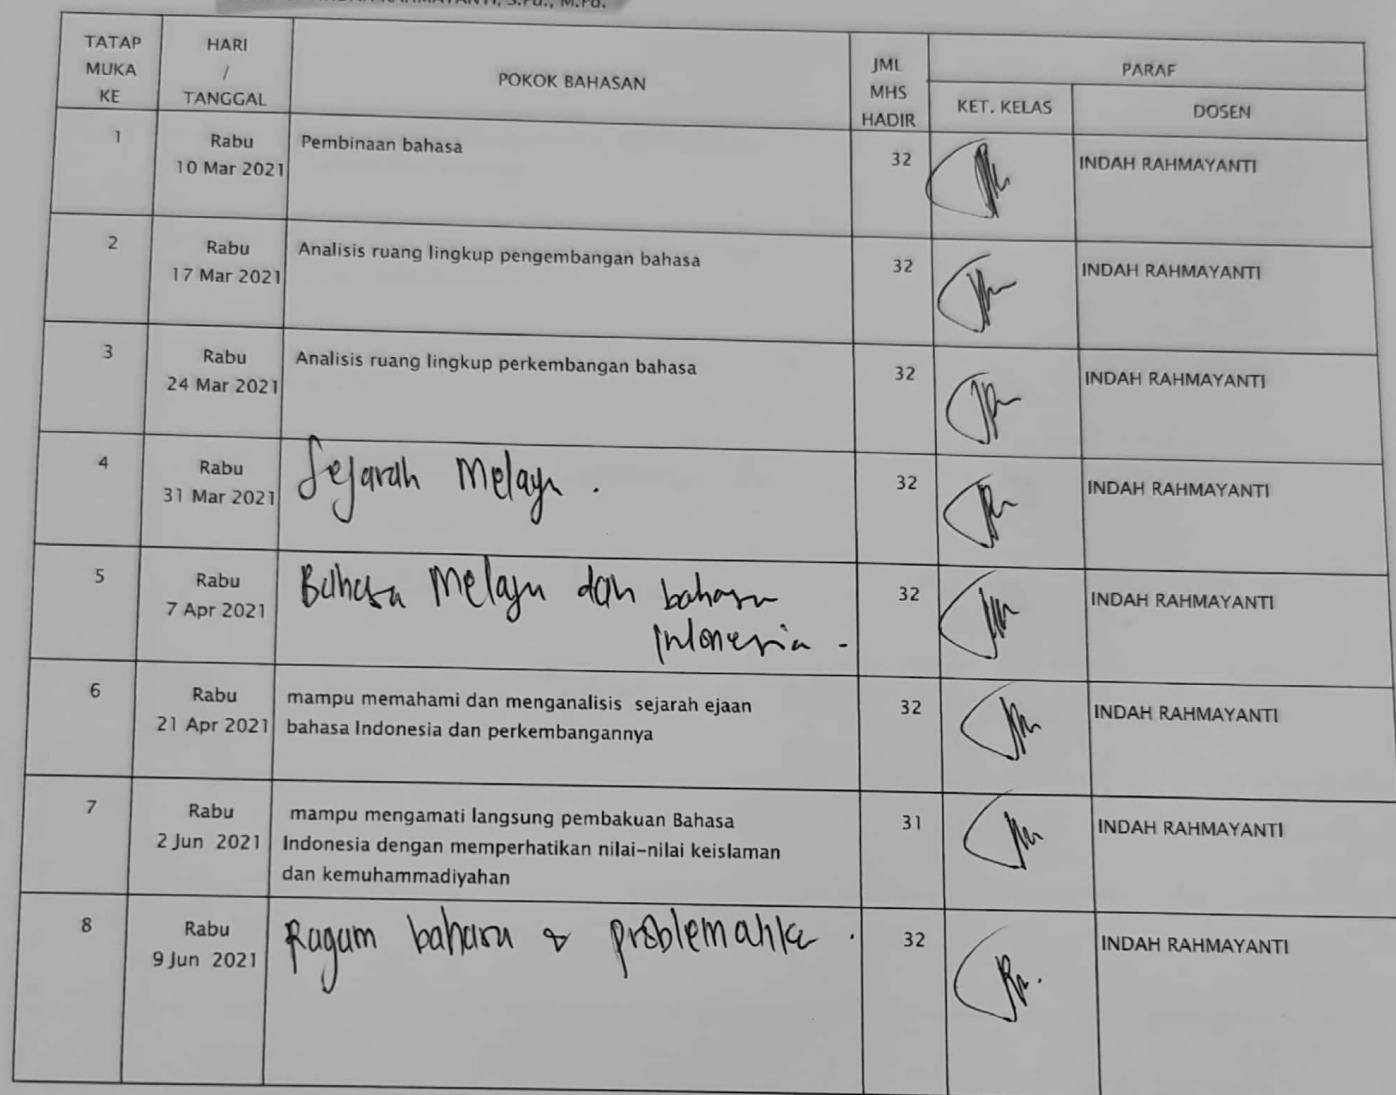 RAHMAYANTI, S.Pd., M.Pd.
TATAP MUKA KE
HARI / TANGGAL
POKOK BAHASAN
JML MHS HADIR
PARAF
KET. KELAS
DOSEN
1
Rabu
10 Mar 2021
Pembinaan bahasa
32
INDAH RAHMAYANTI
2
Rabu
17 Mar 2021
Analisis ruang lingkup pengembangan bahasa
32
INDAH RAHMAYANTI
3
Rabu
24 Mar 2021
Analisis ruang lingkup perkembangan bahasa
32
INDAH RAHMAYANTI
4
Rabu
31 Mar 2021
Sejarah Melayu .
32
INDAH RAHMAYANTI
5
Rabu
7 Apr 2021
Bahasa Melayu dan bahasa
Indonesia -
32
INDAH RAHMAYANTI
6
Rabu
21 Apr 2021
mampu memahami dan menganalisis sejarah ejaan
bahasa Indonesia dan perkembangannya
32
INDAH RAHMAYANTI
7
Rabu
2 Jun 2021
mampu mengamati langsung pembakuan Bahasa
Indonesia dengan memperhatikan nilai-nilai keislaman
dan kemuhammadiyahan
31
INDAH RAHMAYANTI
8
Rabu
9 Jun 2021
Ragam bahasa & problematika .
32
INDAH RAHMAYANTI